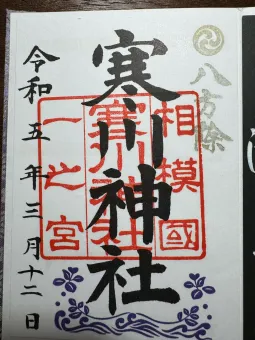 八方除
寒川神社
相模國
寒川神社
一之宮
令和五年三月十二日